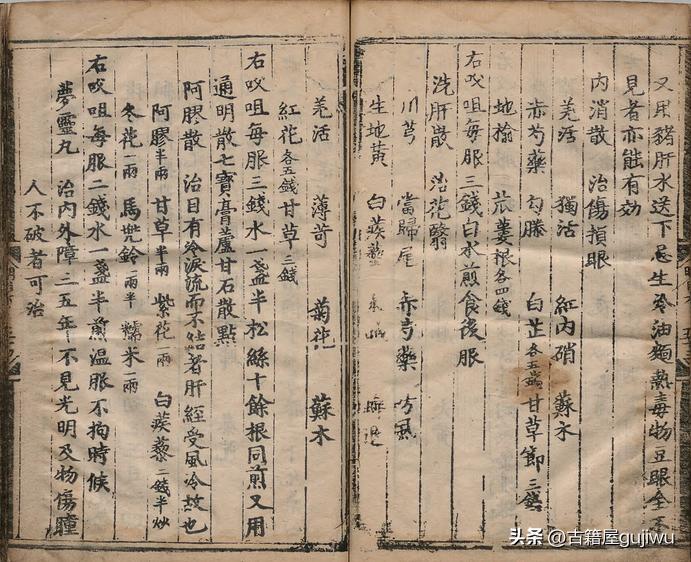 又用豬肝水送下忌生冷油麵熱毒物豆眼全不
見者亦能有効
内消散 治傷損眼
羌活 獨活 紅内硝 蘇木
赤芍藥 勾滕 白芷各五錢 甘草節三錢
地榆 苽蔞根各四錢
右㕮咀每服三錢白水煎食後服
洗肝散 治花翳
川芎 當歸尾 赤芍藥 防風
生地黄 白蒺藜
羌活 薄苛 菊花 蘇木
紅花各五錢 甘草三錢
右㕮咀每服三錢水一盞半松絲十餘根同煎又用
通明散七寶膏蘆甘石散點
阿膠散 治目有冷淚流而不結者肝經受風冷故也
阿膠半兩 甘草半兩 紫花一兩 白蒺藜二錢半炒
冬花一兩 馬兠鈴一兩半 糯米一兩
右㕮咀每服二錢水一盞半煎温服不拘時候
夢靈丸 治内外障三五年不見光明及物傷瞳
人不破者可治
头条 @古籍屋gujiwu